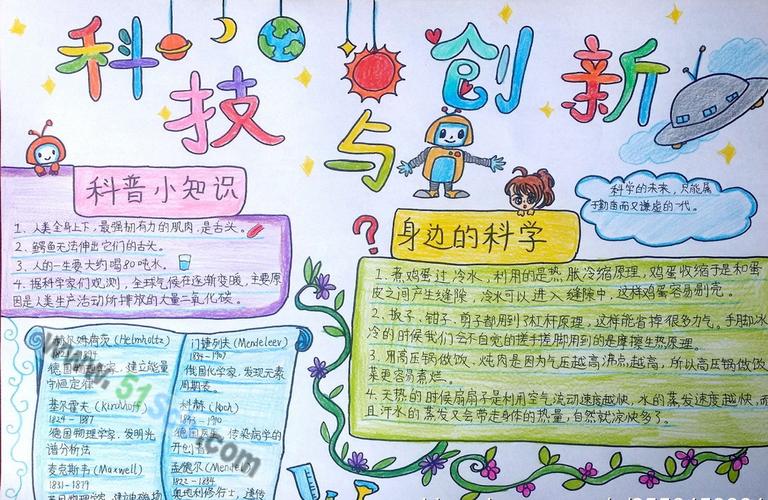 科技与创新
科普小知识
1、人类全身上下,最强韧有力的肌肉,是舌头。
2、鳄鱼无法伸出它们的舌头。
3、人的一生要大约喝80吨水。
4、据科学家们观测,全球气候在逐渐变暖,主要原
因是人类生产活动所排放的大量二氧化碳。
科学的未来,只能属
于勤奋而又谦虚的一代。
身边的科学
1、煮鸡蛋过冷水,利用的是热胀冷缩原理,鸡蛋收缩于是和蛋
皮之间产生缝隙,冷水可以进入缝隙中,这样鸡蛋容易剥壳。
2、扳子、钳子、剪子都用到了杠杆原理,这样能省掉很多力气。手脚冰
冷的时候我们会不自觉的搓手搓脚用到的是摩擦生热原理
3、用高压锅做饭、炖肉是因为气压越高沸点越高,所以高压锅做饭
菜更容易煮烂。
4、天热的时候扇扇子是利用空气流动速度越快,水的蒸发速度越快,而
且汗水的蒸发又会带走身体的热量,自然就凉快多了。
赫尔姆荷茨(Helmholtz)
德国 学家,建立能量
守恒定律
基尔霍夫(Kirchhoff)
1824-1887
德国物理学家,发明光
谱分析法
麦克斯韦(Maxwell)
1831-1879
门捷列夫(Mendeleev)
1834-1907
俄国化学家,发现元素
周期表。
科赫(Koch)
1843-1910
德国医 传染病学的
开创者
孟德尔(Mendel)
1822-1884
奥地利修行士,遗传